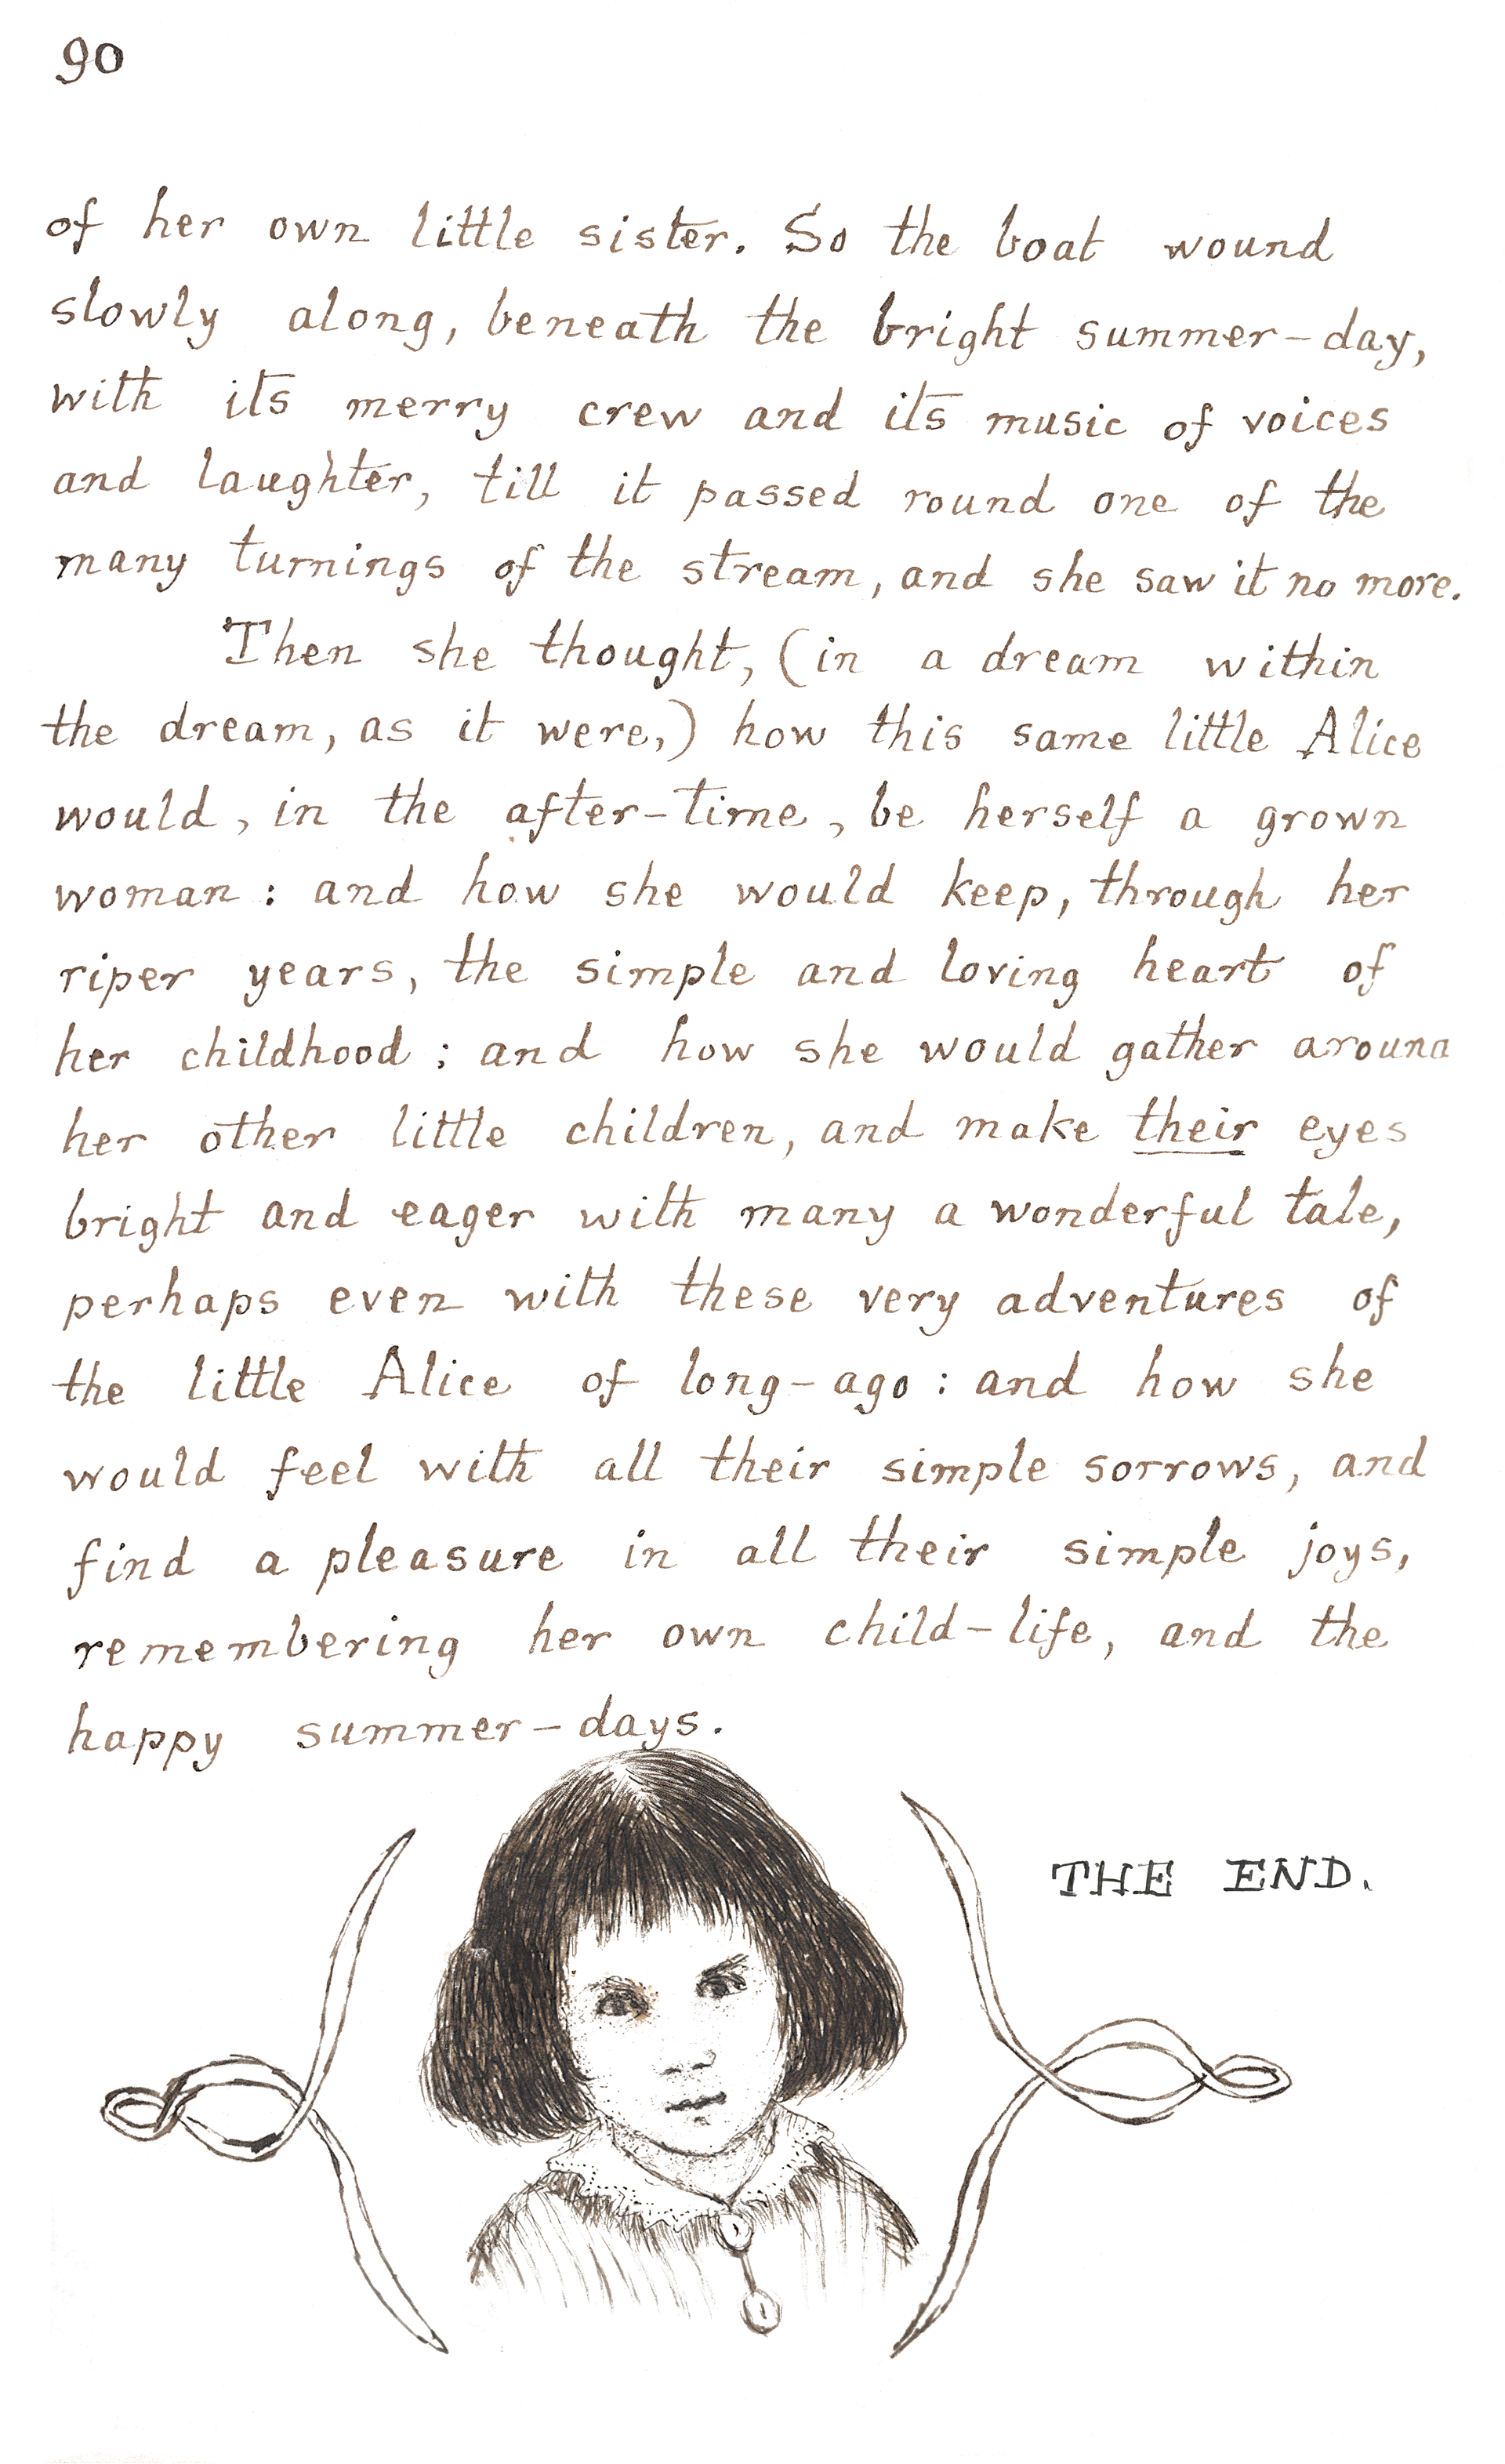 90
of her own little sister. So the boat wound
slowly along, beneath the bright summer-day,
with its merry crew and its music of voices
and laughter, till it passed round one of the
many turnings of the stream, and she saw it no more.
Then she thought, (in a dream within
the dream, as it were,) how this same little Alice
would, in the after-time, be herself a grown
woman: and how she would keep, through her
riper years, the simple and loving heart of
her childhood; and how she would gather around
her other little children, and make their eyes
bright and eager with many a wonderful tale,
perhaps even with these very adventures of
the little Alice of long-ago: and how she
would feel with all their simple sorrows, and
find a pleasure in all their simple joys,
remembering her own child-life, and the
happy summer-days.
THE END.